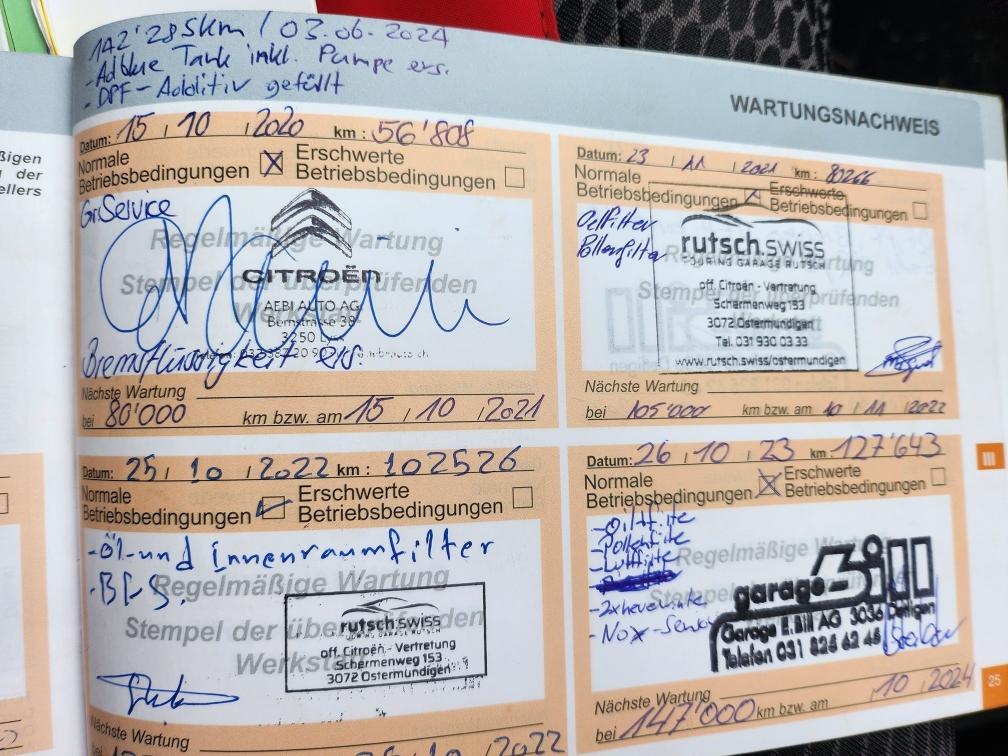 142'285km / 03.06.2024
- Adblue Tank inkl. Pumpe ers.
- DPF-Additiv gefüllt
WARTUNGSNACHWEIS
ßigen
der
ellers
Datum: 15 / 10 / 2020 km: 56'808
Normale Betriebsbedingungen
Erschwerte Betriebsbedingungen
Gr. Service
Regelmäßige Wartung
Stempel der überprüfenden
CITROËN
AEBI AUTO AG
Bernstrasse 38
3250 Lyss
Bremsflüssigkeit ers.
Nächste Wartung
bei 80'000 km bzw. am 15 / 10 / 2021
Datum: 23 / 11 / 2021 km: 80266
Normale Betriebsbedingungen
Erschwerte Betriebsbedingungen
Oelfilter
Pollenfilter
rutsch.swiss
TOURING GARAGE RUTSCH
off. Citroën - Vertretung
Schermenweg 153
3072 Ostermundigen
Tel. 031 930 03 33
www.rutsch.swiss/ostermundigen
Nächste Wartung
bei 105'000 km bzw. am 10 / 11 / 2022
Datum: 25 / 10 / 2022 km: 102526
Normale Betriebsbedingungen
Erschwerte Betriebsbedingungen
- Öl- und Innenraumfilter
Regelmäßige Wartung
Stempel der überprüfenden
rutsch.swiss
TOURING GARAGE RUTSCH
off. Citroën - Vertretung
Schermenweg 153
3072 Ostermundigen
Nächste Wartung
Datum: 26 / 10 / 23 km: 127'643
Normale Betriebsbedingungen
Erschwerte Betriebsbedingungen
- Ölfilte
- Pollenfilte
- Luftfilte
Regelmäßige Wartung
- Nox-Sensor
garage Bill
Garage E. Bill AG 3036 Detligen
Telefon 031 825 62 45
Nächste Wartung
bei 147'000 km bzw. am 10 / 2024
III
25